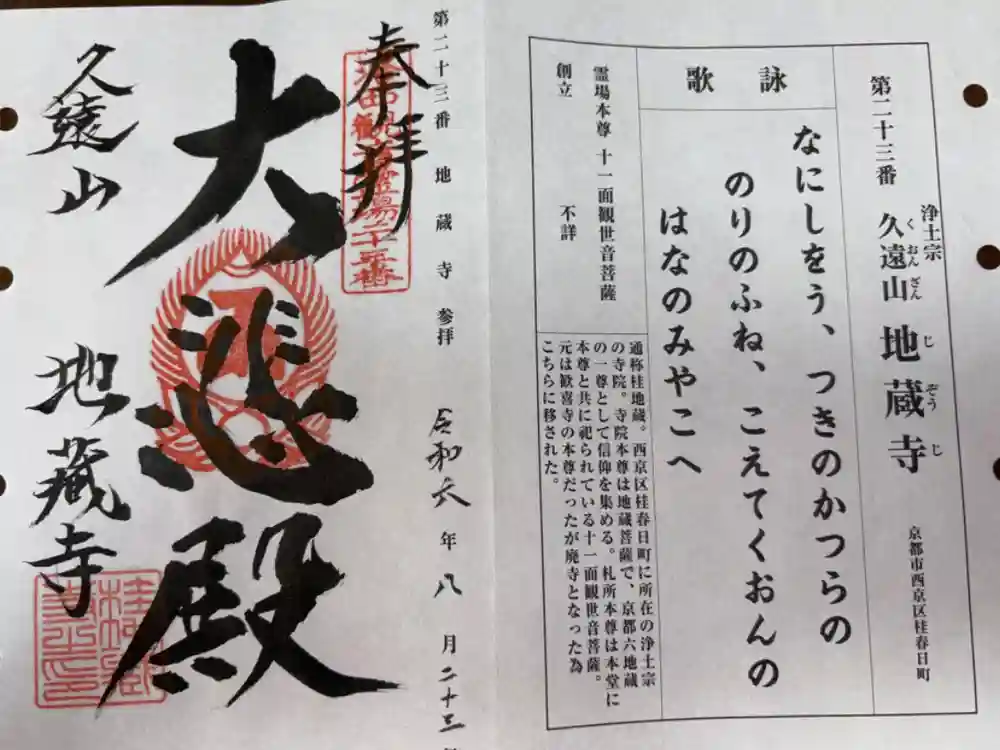 第二十三番
浄土宗
久遠山 地蔵寺
くおんざん じぞうじ
京都市西京区桂春日町
詠歌
なにしをう、つきのかつらの
のりのふね、こえてくおんの
はなのみやこへ
霊場本尊 十一面観世音菩薩
創立 不詳
通称桂地蔵。西京区桂春日町に所在の浄土宗
の寺院。寺院本尊は地蔵菩薩で、京都六地蔵
の一尊として信仰を集める。札所本尊は本堂に
本尊と共に祀られている十一面観世音菩薩。
元は歓喜寺の本尊だったが廃寺となった為
こちらに移された。
第二十三番 地蔵寺参拝 令和六年八月二十三
奉拝
大悲殿
久遠山 地蔵寺